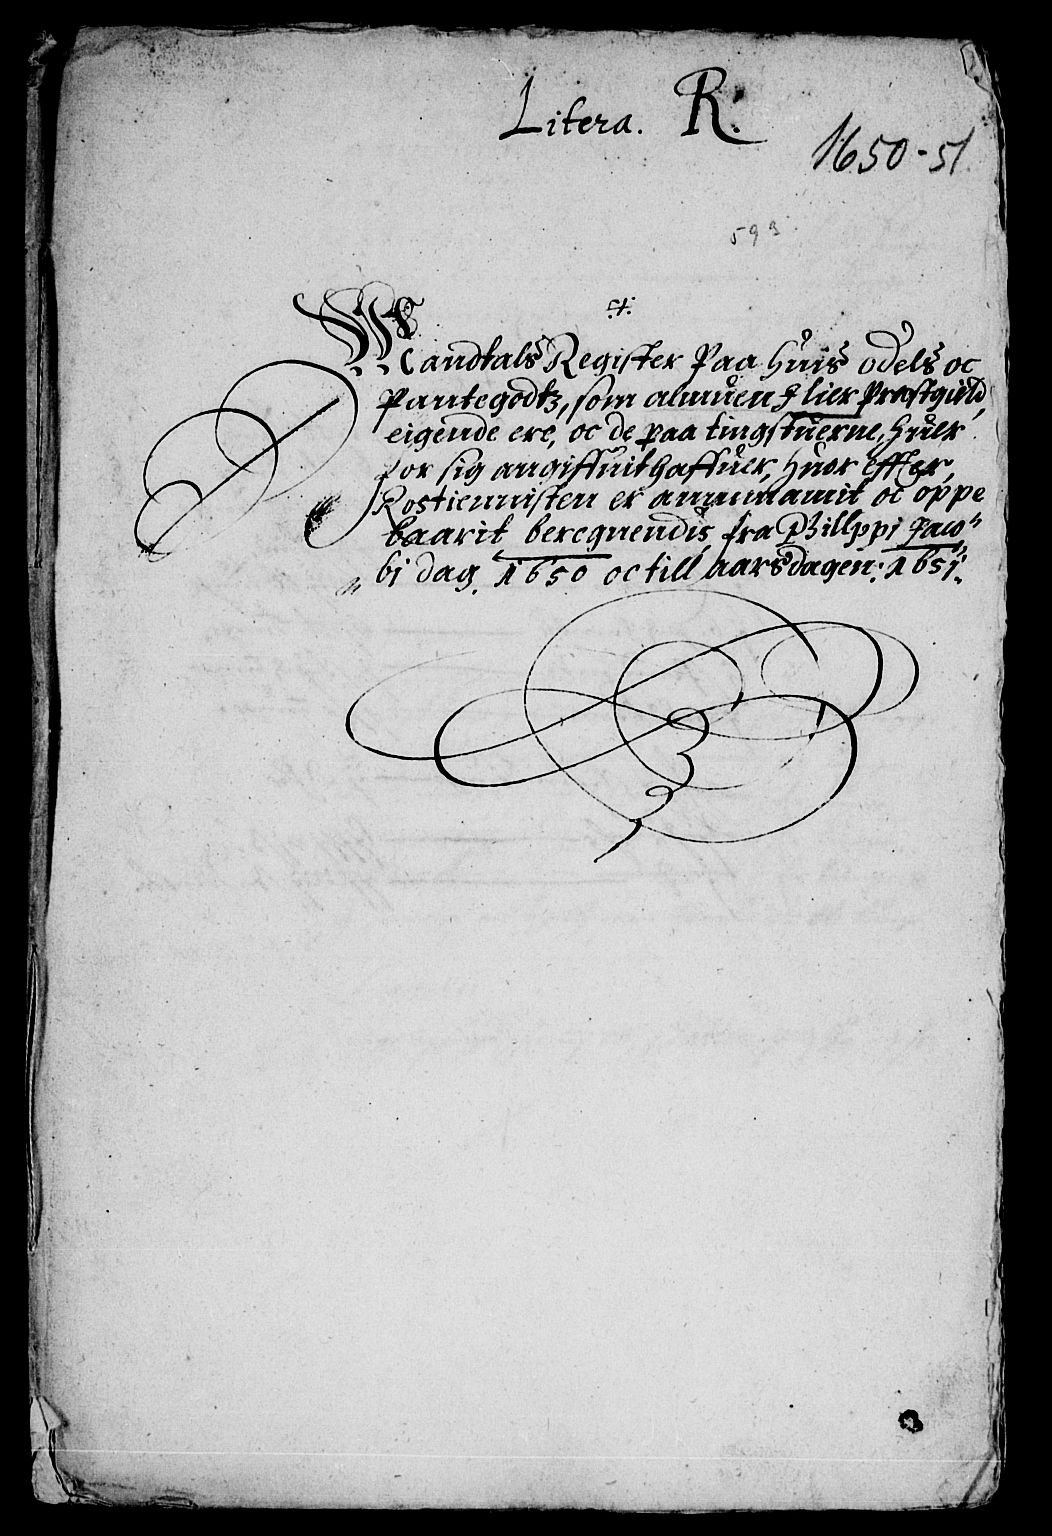 Litera. R.
1650-51
593
Mandtals Register Paa huis odels oc
Pantegodtz, som almuen J lier Præstgield,
eigende ere, oc de paa tingstuerne, huer
for sig angiffuit haffuer, huor effter
Rostienisten er annammit oc oppe
baarit beregnendis fra Phillppi Jaco"
bi dag. 1650 oc till aarsdagen: 1651.